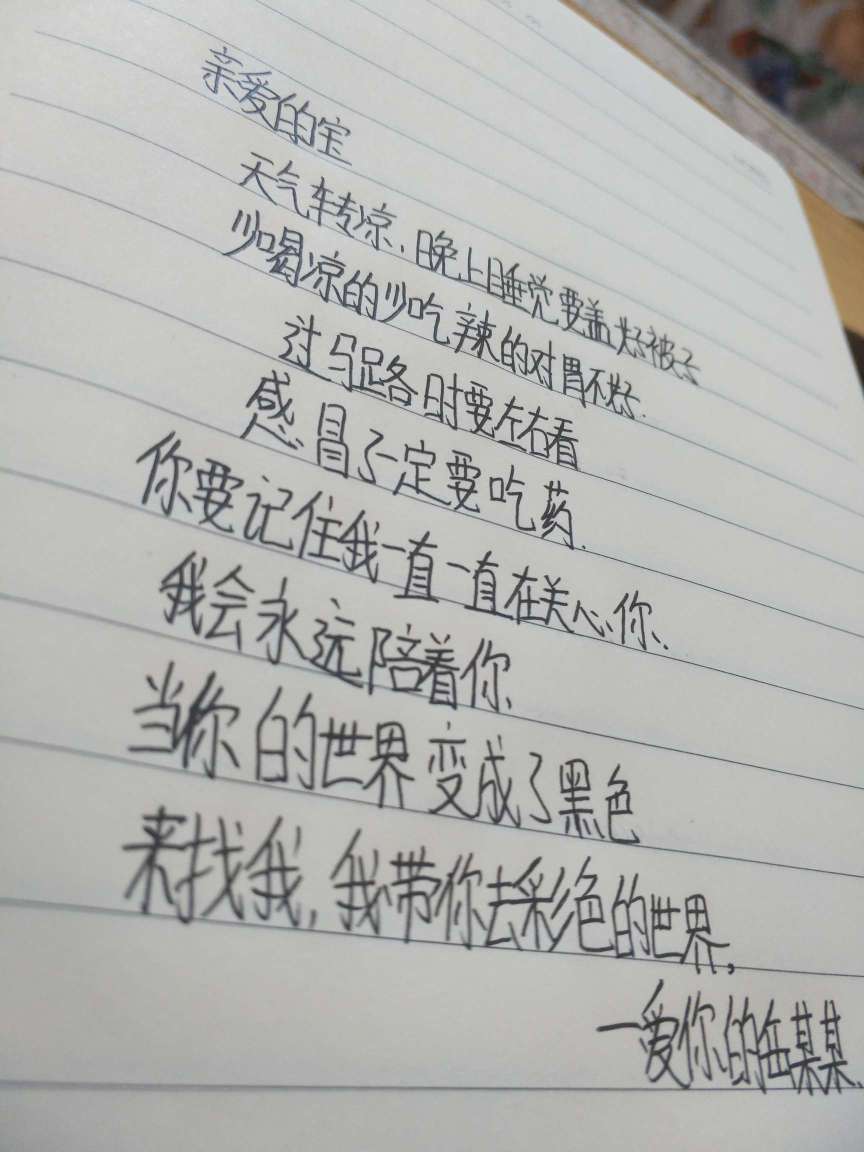 亲爱的宝
天气转凉、晚上睡觉要盖好被子
少喝凉的少吃辣的对胃不好.
过马路时要左右看
感冒了一定要吃药.
你要记住我一直一直在关心你、
我会永远陪着你、
当你的世界变成了黑色
来找我,我带你去彩色的世界,
一爱你的缶某某、